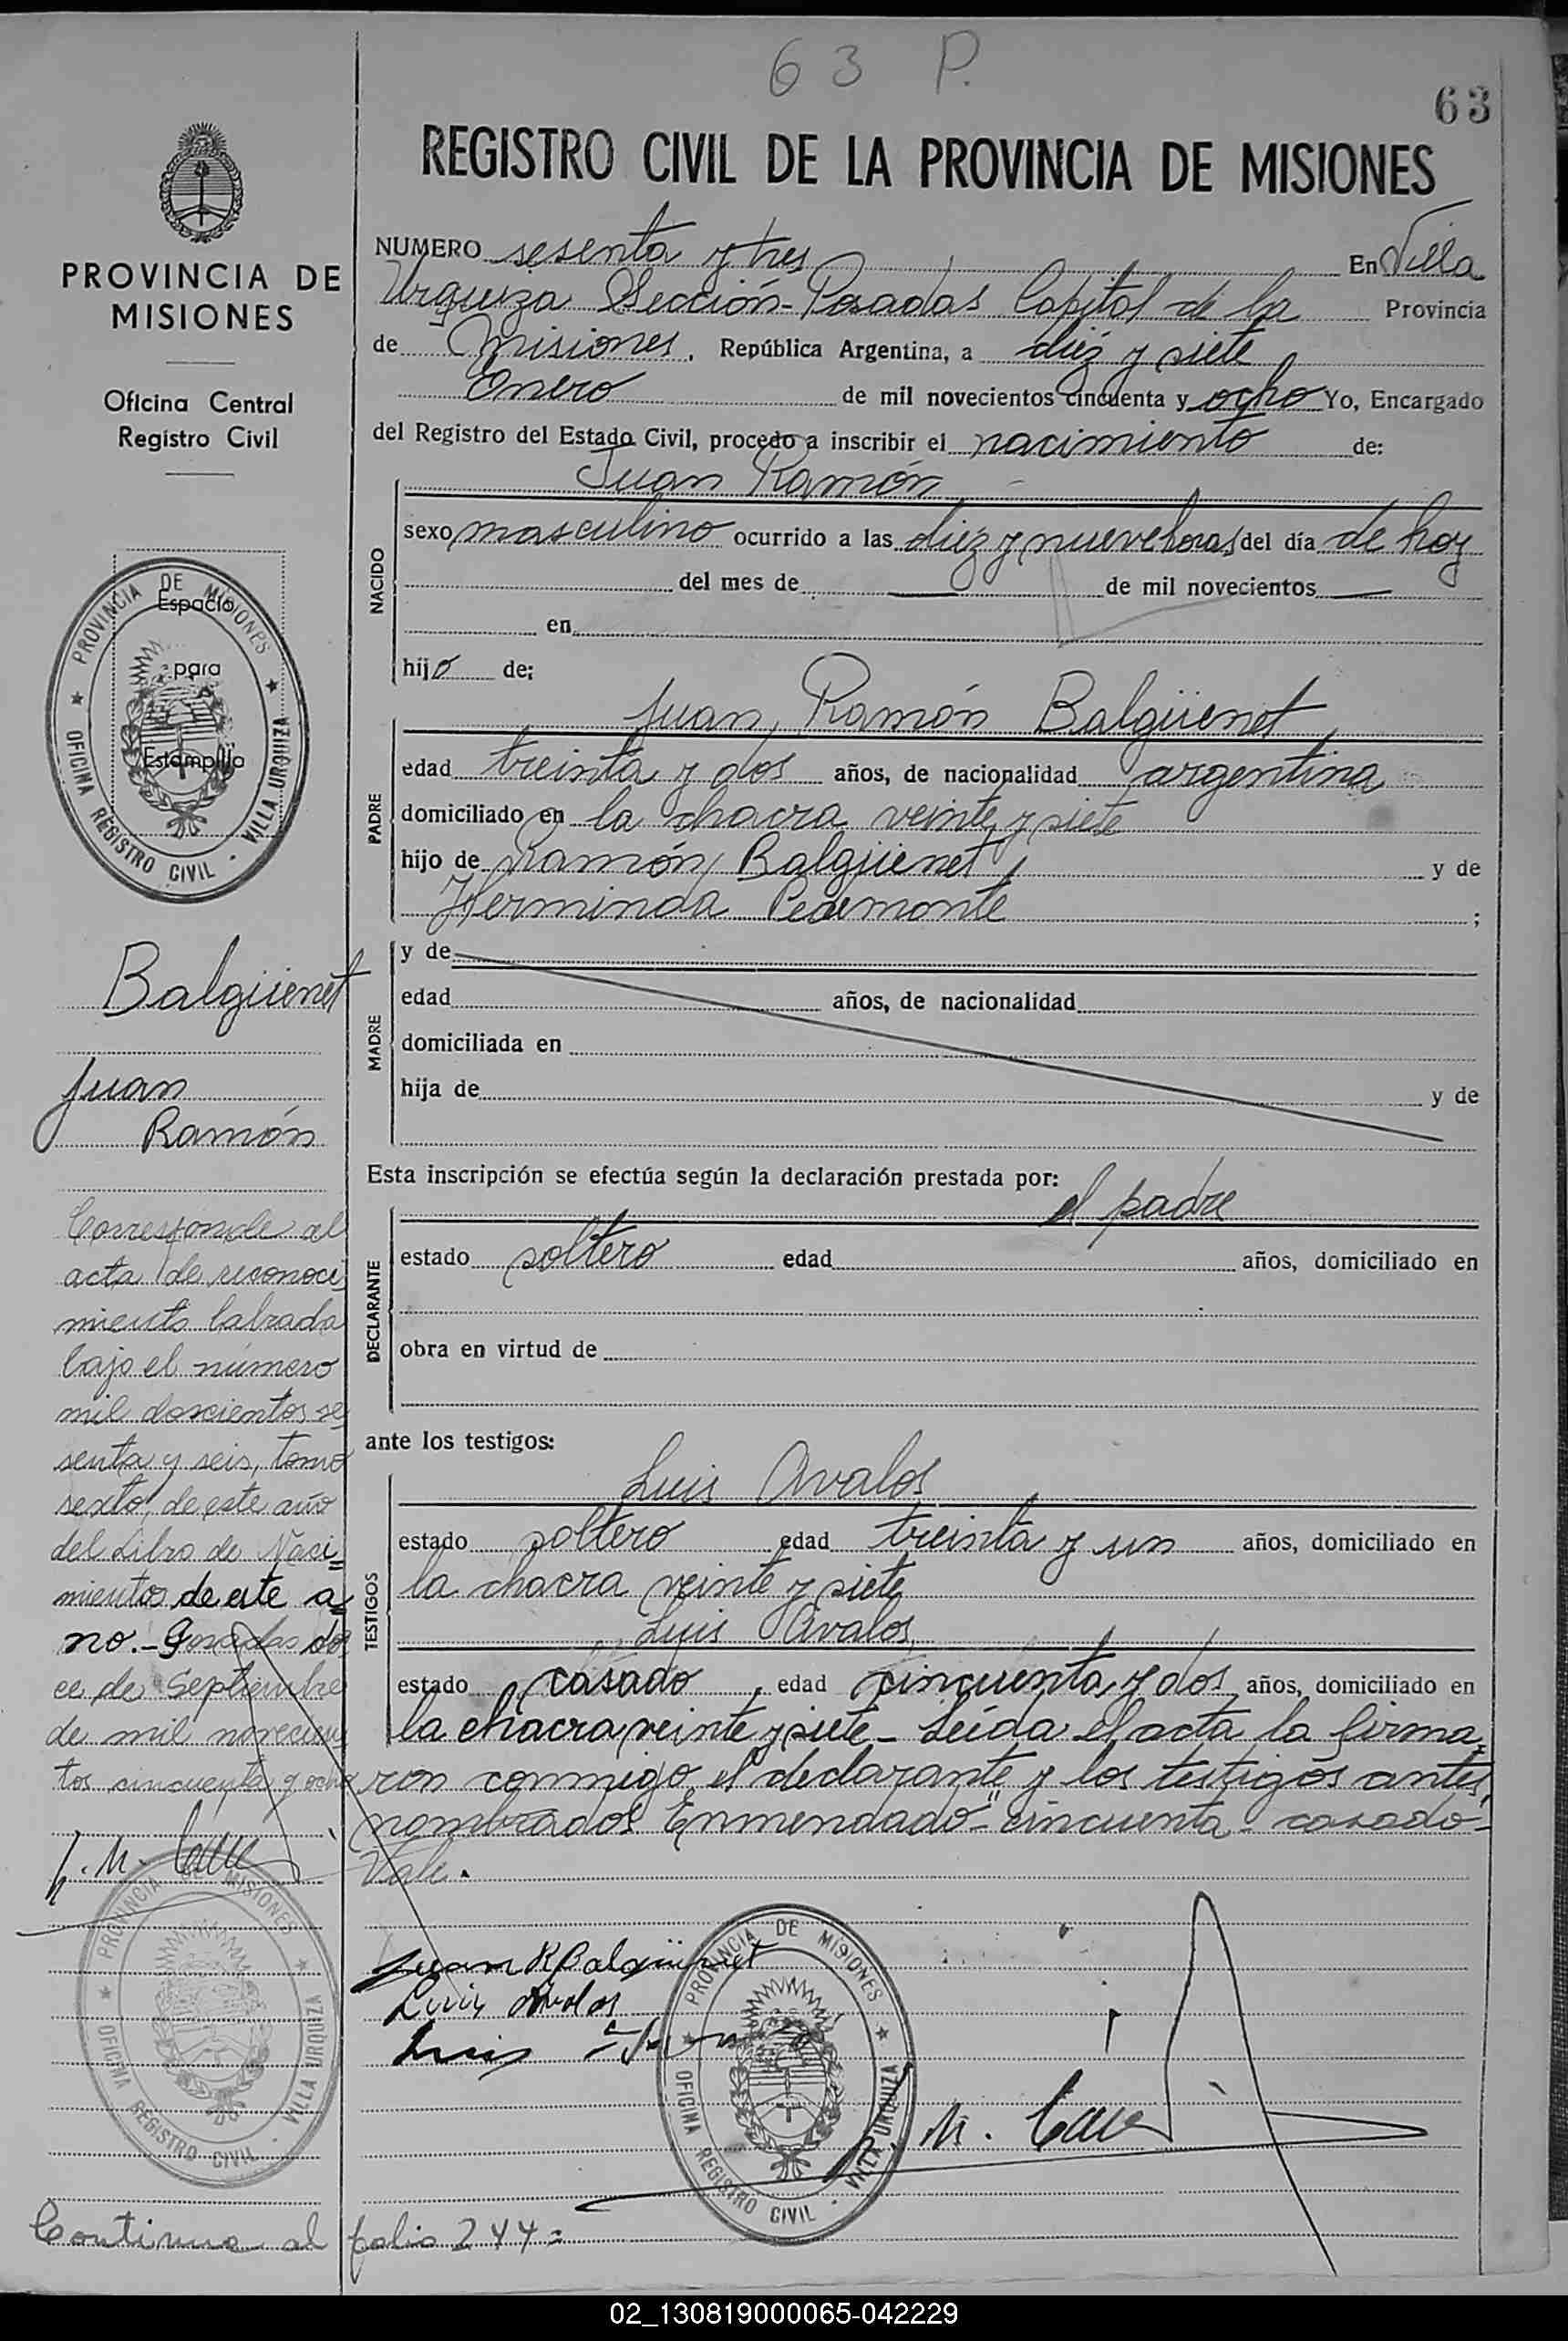 63 P.
63
REGISTRO CIVIL DE LA PROVINCIA DE MISIONES
PROVINCIA DE
MISIONES
Oficina Central
Registro Civil
PROVINCIA DE MISIONES
OFICINA REGISTRO CIVIL - VILLA URQUIZA
Espacio
para
Estampilla
Balgüenet
Juan
Ramón
Corresponde al
acta de reconoci
miento labrada
bajo el número
mil doscientos se
senta y seis, tomo
sexto, de este año
del Libro de Naci=
mientos de este a=
no.- Posadas do
ce de Septiembre
de mil novecien
tos cincuenta y ocho
PROVINCIA DE MISIONES
OFICINA REGISTRO CIVIL - VILLA URQUIZA
NUMERO sesenta y tres En Villa
Urquiza Sección-Posadas Capital de la Provincia
de Misiones, República Argentina, a diez y siete
Enero de mil novecientos cincuenta y ocho Yo, Encargado
del Registro del Estado Civil, procedo a inscribir el nacimiento de:
Juan Ramón
NACIDO
sexo masculino ocurrido a las diez y nueve horas del día de hoy
del mes de — de mil novecientos —
en
hijo de:
Juan Ramón Balgüenet
PADRE
edad treinta y dos años, de nacionalidad argentina
domiciliado en la chacra veinte y siete
hijo de Ramón Balgüenet y de
Herminda ;
MADRE
y de
edad años, de nacionalidad
domiciliada en
hija de y de
Esta inscripción se efectúa según la declaración prestada por:
el padre
DECLARANTE
estado soltero edad años, domiciliado en
obra en virtud de
ante los testigos:
Luis Avalos
TESTIGOS
estado soltero edad treinta y un años, domiciliado en
la chacra veinte y siete
Luis Avalos
estado casado edad cincuenta y dos años, domiciliado en
la chacra veinte y siete - Leída el acta la firma=
ron conmigo, el declarante y los testigos antes
nombrados Enmendado-"cincuenta- casado-
Vale.
Juan R Balgüenet
Luis Avalos
Luis
PROVINCIA DE MISIONES
OFICINA REGISTRO CIVIL - VILLA URQUIZA
Continua al folio 244=
02_130819000065-042229